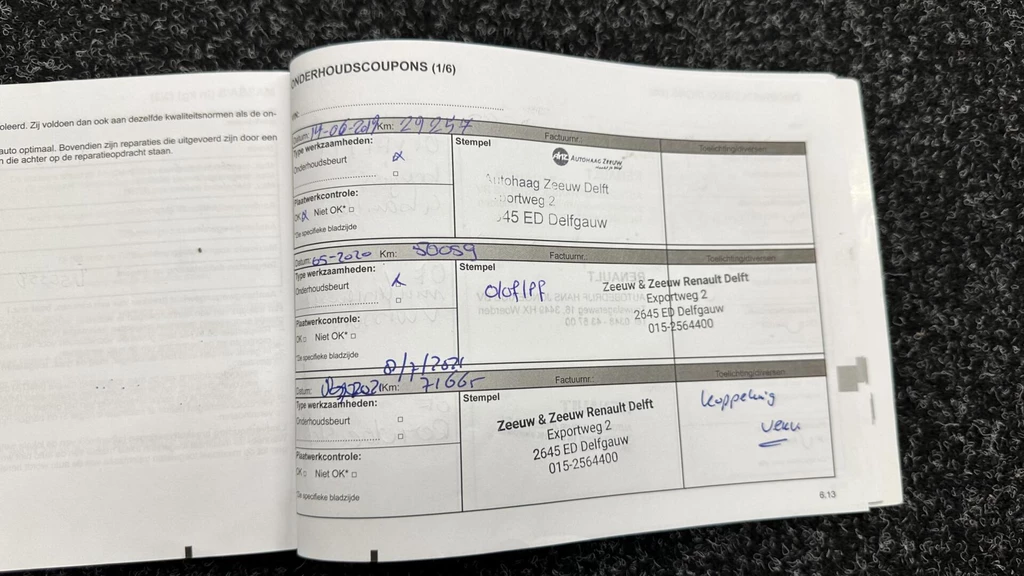 oleerd. Zij voldoen dan ook aan dezelfde kwaliteitsnormen als de on-
auto optimaal. Bovendien zijn reparaties die uitgevoerd zijn door een
n die achter op de reparatieopdracht staan.
ONDERHOUDSCOUPONS (1/6)
Datum: 14-06-2019 Km: 29257 Factuurnr.: Toelichting/diversen
Type werkzaamheden:
Onderhoudsbeurt
Plaatwerkcontrole:
OK Niet OK*
*Zie specifieke bladzijde
Stempel
AUTOHAAG ZEEUW
Autohaag Zeeuw Delft
Exportweg 2
2645 ED Delfgauw
Datum: 05-2020 Km: 50059 Factuurnr.: Toelichting/diversen
Type werkzaamheden:
Onderhoudsbeurt
Plaatwerkcontrole:
OK Niet OK*
*Zie specifieke bladzijde
Stempel
Zeeuw & Zeeuw Renault Delft
Exportweg 2
2645 ED Delfgauw
015-2564400
8/7/2021
Datum: Km: 71665 Factuurnr.: Toelichting/diversen
Type werkzaamheden:
Onderhoudsbeurt
Plaatwerkcontrole:
OK Niet OK*
*Zie specifieke bladzijde
Stempel
Zeeuw & Zeeuw Renault Delft
Exportweg 2
2645 ED Delfgauw
015-2564400
koppeling
6.13